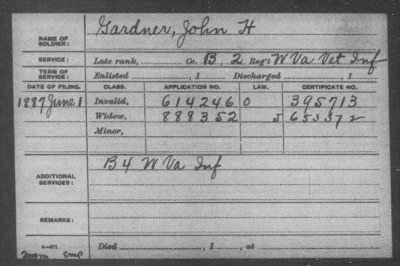 NAME OF SOLDIER: Gardner, John H
SERVICE: Late rank, Co. B, 2 Reg't W Va Vet Inf
TERM OF SERVICE: Enlisted , 1 Discharged , 1
DATE OF FILING. CLASS. APPLICATION NO. LAW. CERTIFICATE NO.
1887 June 1 Invalid, 614246 0 395713
Widow, 888352 653372
Minor,
ADDITIONAL SERVICES: B 4 W Va Inf
REMARKS:
Died , 1 , at